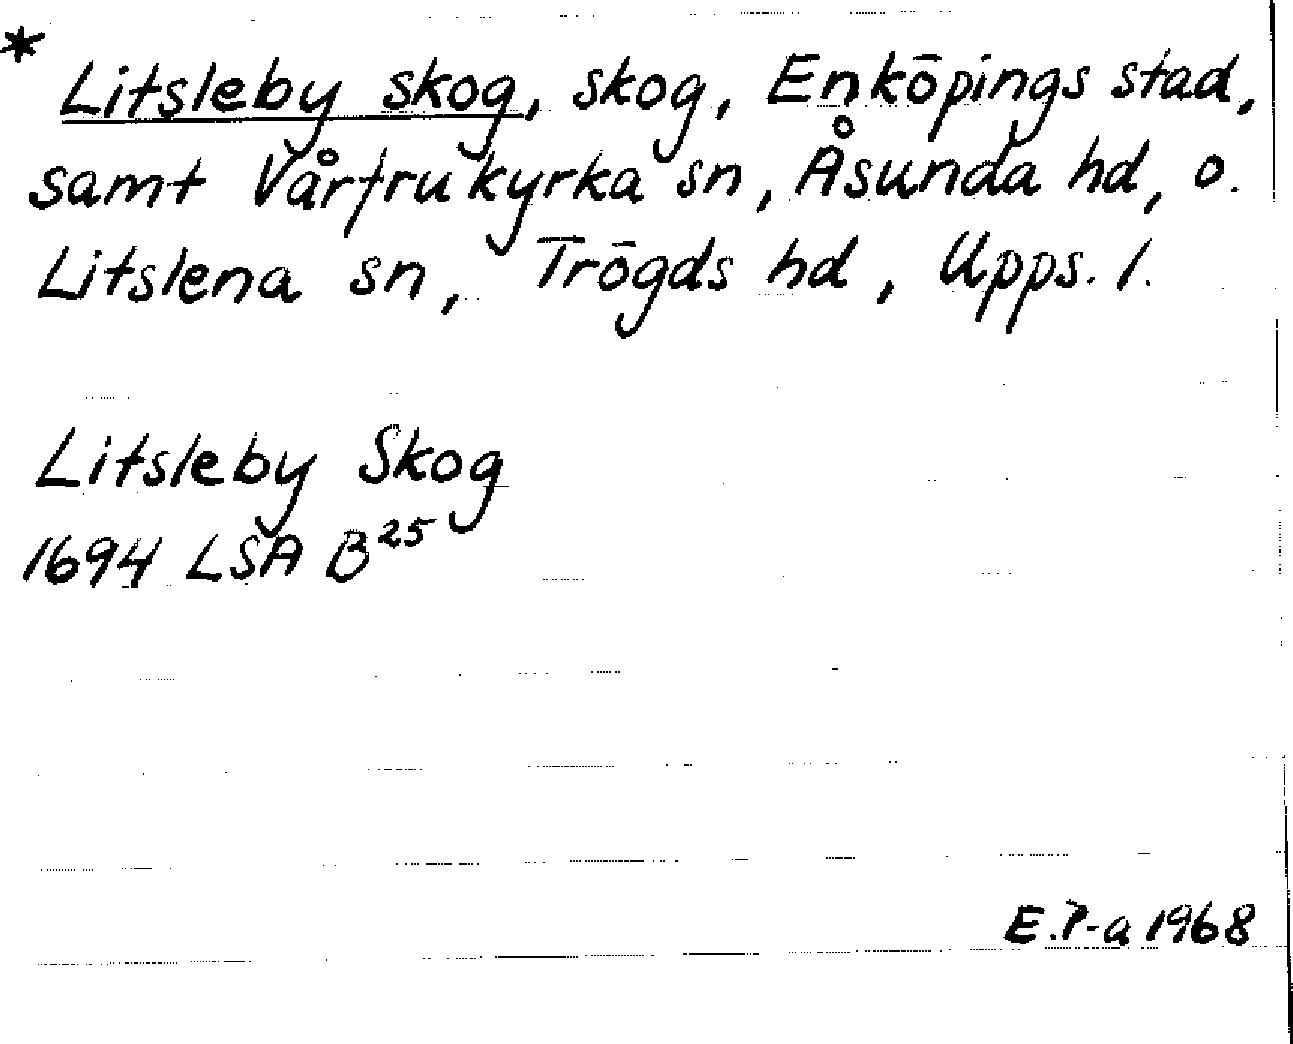 * Litsleby skog, skog, Enköpings stad,
samt Vårfrukyrka sn, Åsunda hd, o.
Litslena sn, Trögds hd, Upps. l.
Litsleby Skog
1694 LSA B²⁵
E.P-a 1968